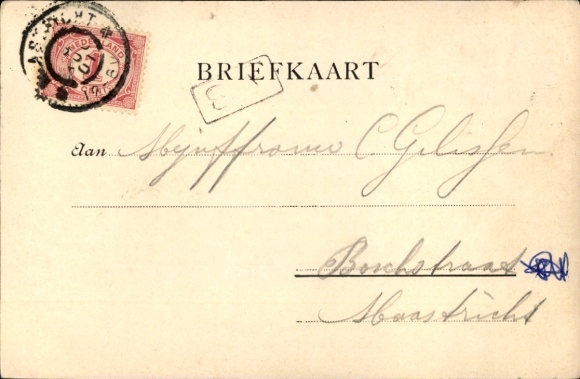 MAASTRICHT
NEDERLAND
BRIEFKAART
Aan Mejuffrouw C Gelissen
Boschstraat
Maastricht